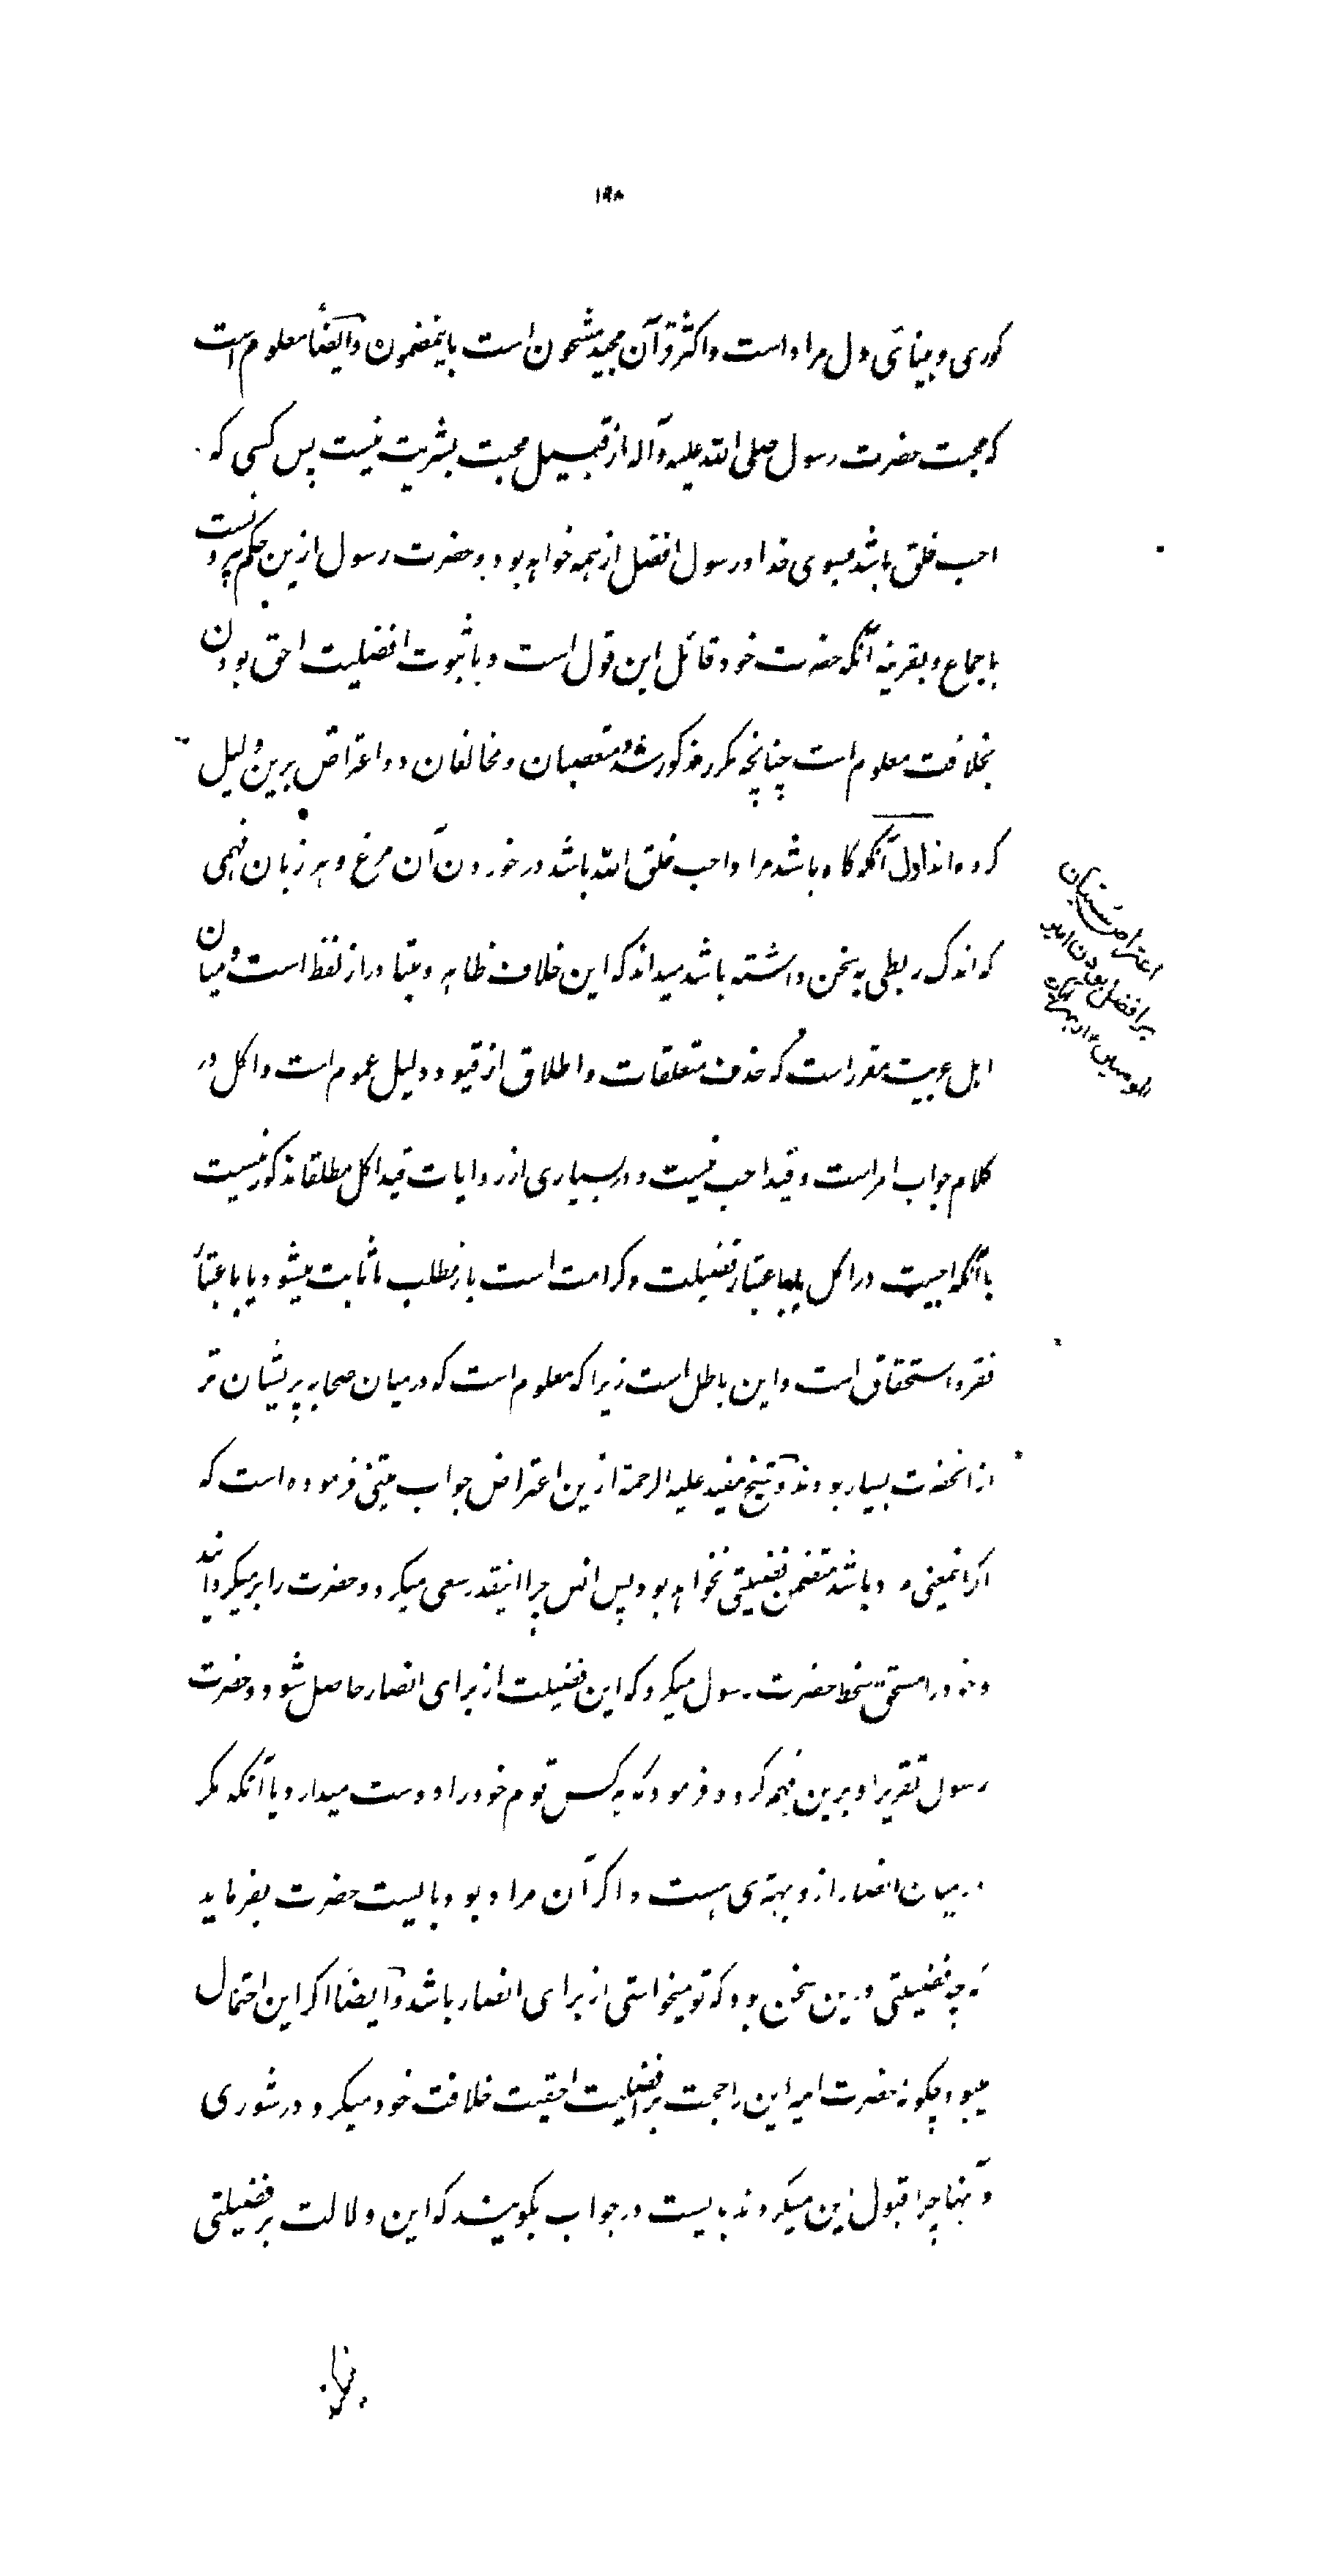 ۱۹۸
کوری و بینائی دل مراد است و اکثر قرآن مجید مشحون است باینمضمون و ایضاً معلوم است
که محبت حضرت رسول صلی الله علیه و آله از قبیل محبت بشریت نیست پس کسی که
احب خلق باشد بسوی خدا و رسول افضل از همه خواهد بود و حضرت رسول ازین حکم بیرونست
باجماع و بقرینه آنکه حضرت خود قائل این قول است و با ثبوت افضلیت احق بودن
بخلافت معلوم است چنانچه مکرر مذکور شد و متعصبان و مخالفان دو اعتراض برین دلیل
کرده‌اند اول آنکه گاه باشد مراد احب خلق الله باشد در خوردن آن مرغ و هر زبان فهمی
که اندک ربطی به سخن داشته باشد میداند که این خلاف ظاهر و متبادر از لفظ است و میان
اهل عربیت مقرر است که حذف متعلقات و اطلاق از قیود دلیل عموم است و اکل در
کلام جواب امر است و قید احب نیست و در بسیاری از روایات قید اکل مطلقا مذکور نیست
با آنکه احبیت در اکل یا باعتبار فضیلت و کرامت است باز مطلب ما ثابت میشود یا باعتبار
فقر و استحقاق است و این باطل است زیرا که معلوم است که در میان صحابه پریشان تر
از انحضرت بسیار بودند و شیخ مفید علیه الرحمة ازین اعتراض جواب متینی فرموده است که
اگر اینمعنی مراد باشد متضمن فضیلتی نخواهد بود پس انس چرا اینقدر سعی میکرد و حضرت را برمیگردانید
و خود را مستحق سخط حضرت رسول میکرد که این فضیلت از برای انصار حاصل شود و حضرت
رسول تقریر او برین فهم کرد و فرمود که هر کس قوم خود را دوست میدارد یا آنکه مگر
در میان انصار ازو بهتری هست و اگر آن مراد بود بایست حضرت بفرماید
که چه فضیلتی درین سخن بود که تو میخواستی از برای انصار باشد و ایضاً اگر این احتمال
میبود چگونه حضرت امیر این را حجت بر افضلیت احقیت خلافت خود میکرد در شوری
و آنها چرا قبول ازین میکردند بایست در جواب بگویند که این دلالت بر فضیلتی
اعتراض سنیان
بر افضل بودن امیر
المومنین